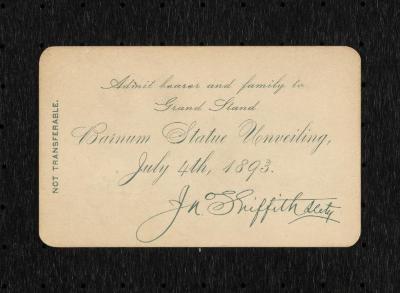 Admit bearer and family to
Grand Stand
Barnum Statue Unveiling,
July 4th, 1893.
Jno Griffith Secty
NOT TRANSFERABLE.